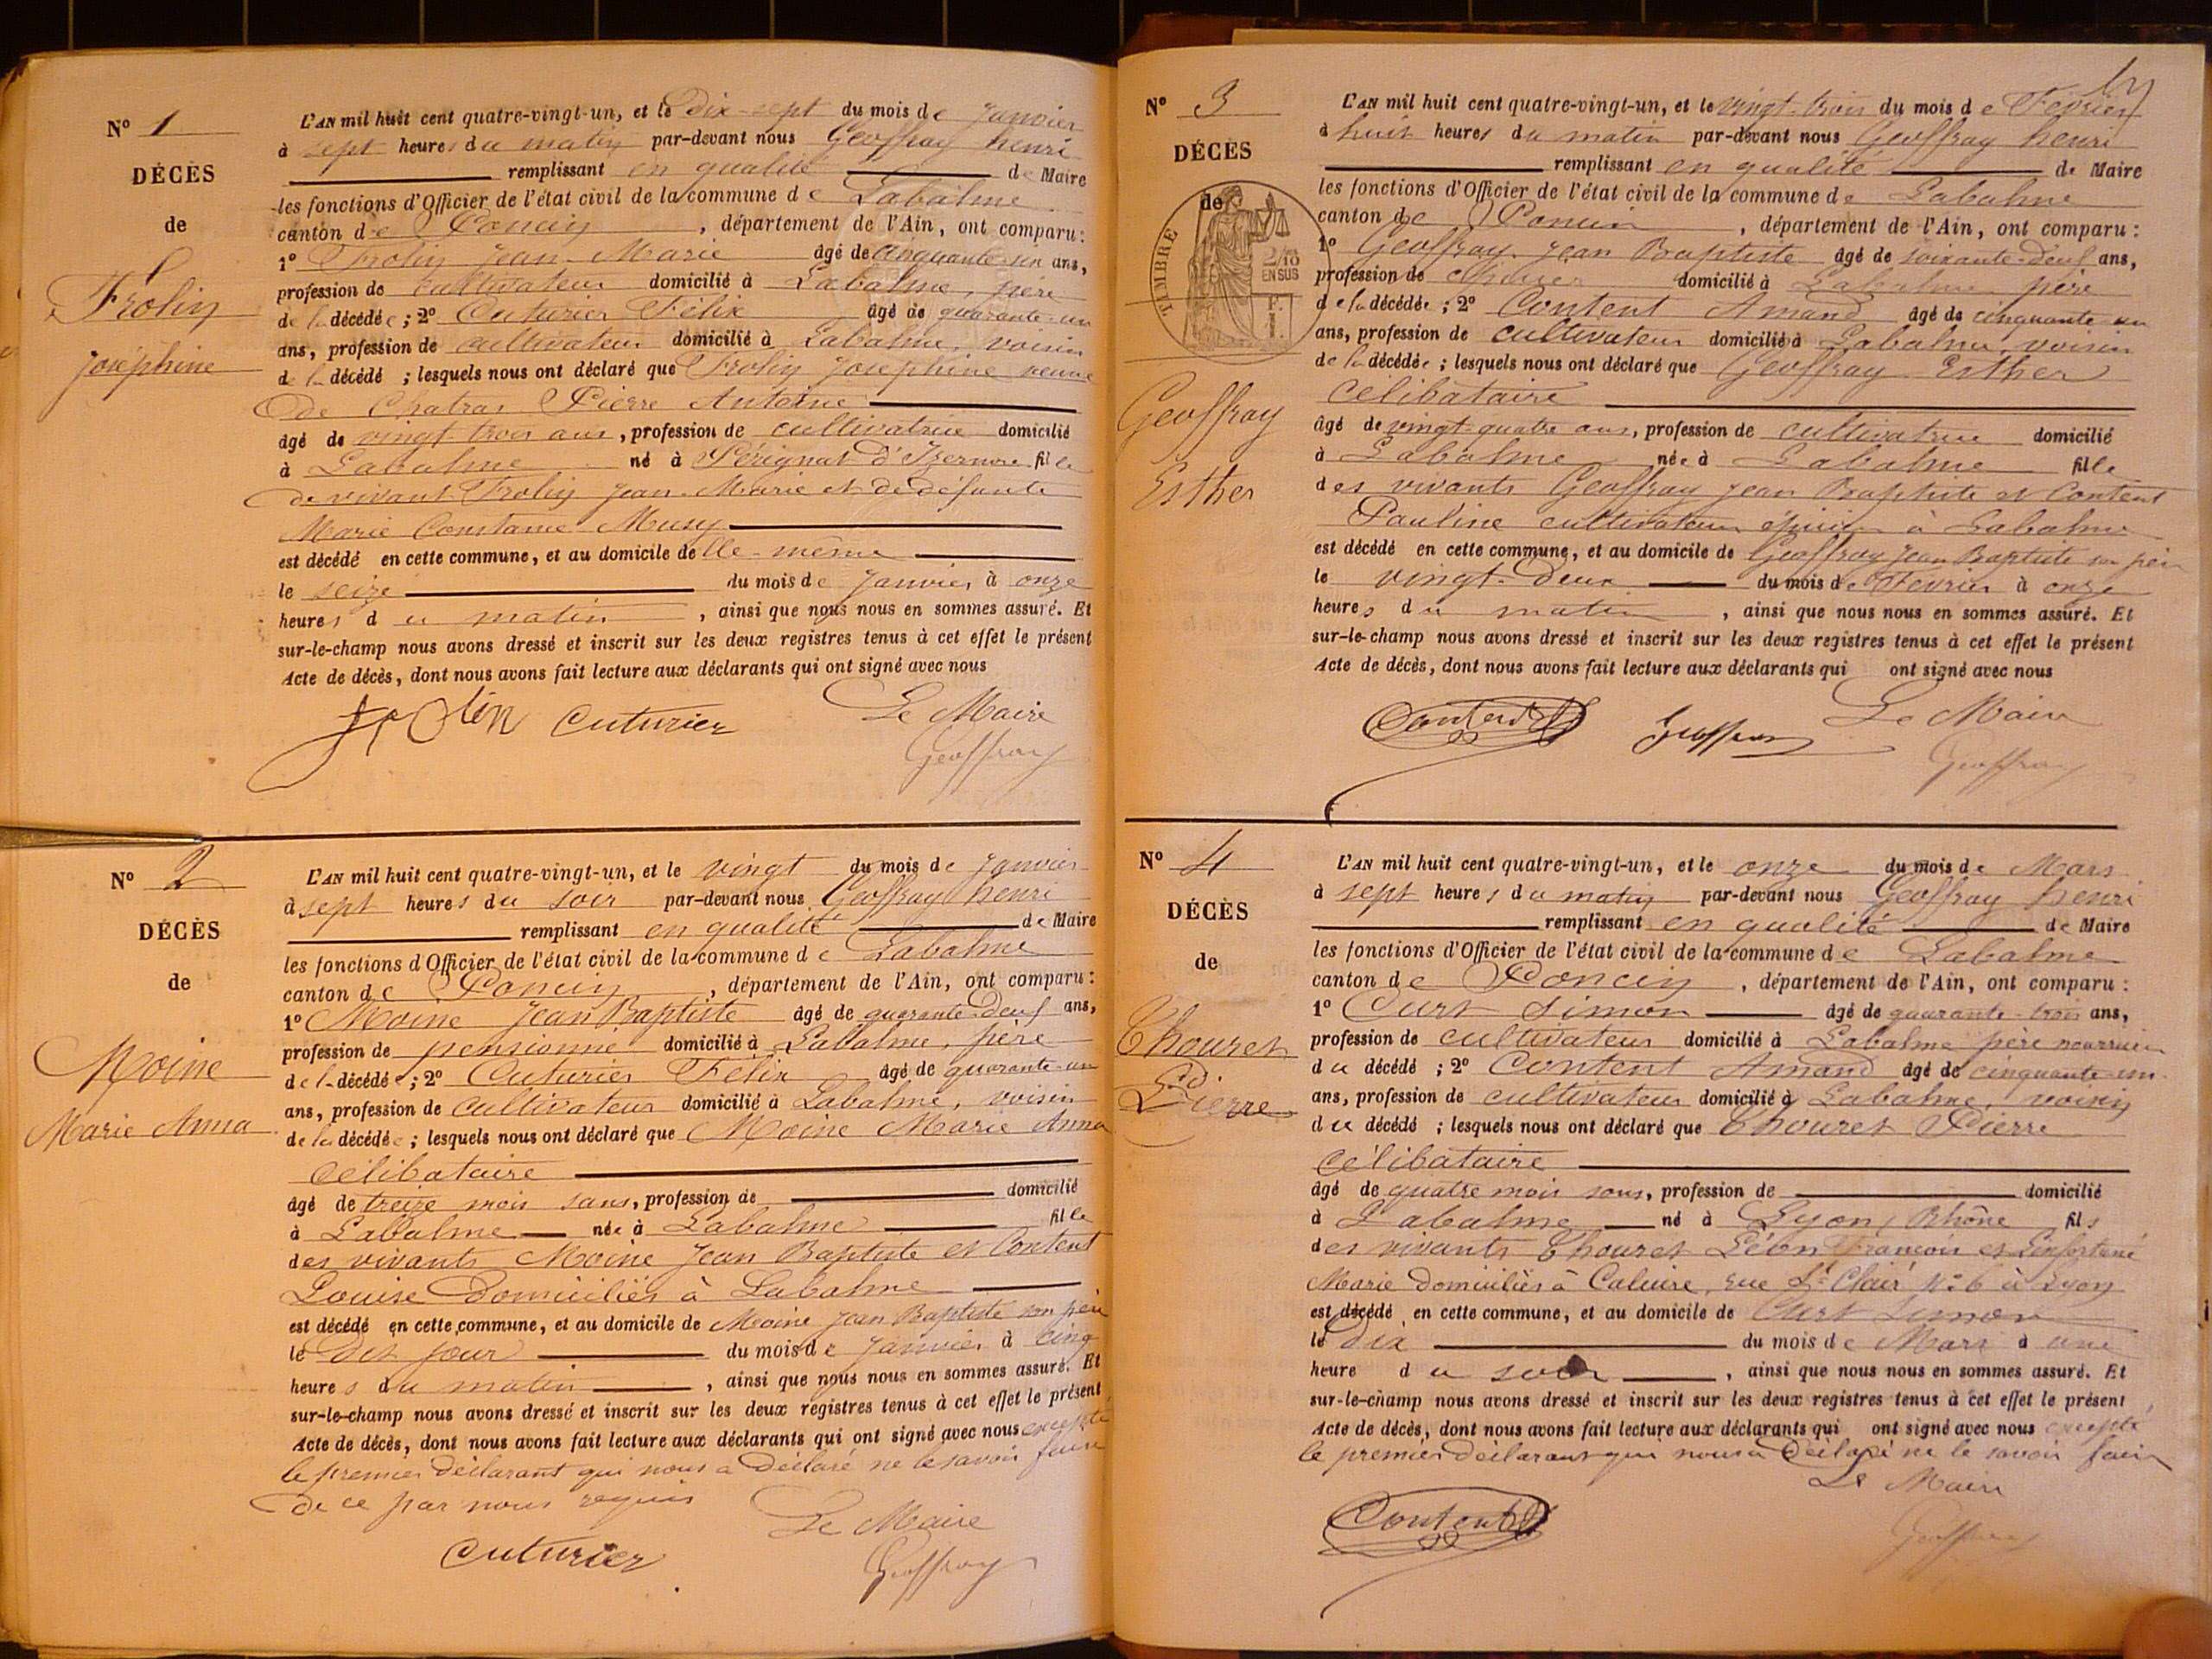 N° 1
DÉCÈS
de
Frolin
Joséphine
L'AN mil huit cent quatre-vingt-un, et le dix-sept du mois de Janvier
à sept heures du matin par-devant nous Geoffray henri
remplissant en qualité de Maire
les fonctions d'Officier de l'état civil de la commune de Labalme
canton de Poncin, département de l'Ain, ont comparu :
1° Frolin Jean-Marie âgé de cinquante-un ans,
profession de cultivateur domicilié à Labalme, père
de la décédée ; 2° Cuturier Félix âgé de quarante-un
ans, profession de cultivateur domicilié à Labalme, voisin
de la décédé ; lesquels nous ont déclaré que Frolin Joséphine veuve
de Chatras Pierre Antoine
âgé de vingt-trois ans, profession de cultivatrice domicilié
à Labalme né à Pérignat d'Izernore fille
de vivant Frolin Jean-Marie et de défunte
Marie Constance Musy
est décédé en cette commune, et au domicile de lle-même
le seize du mois de Janvier à onze
heures du matin, ainsi que nous nous en sommes assuré. Et
sur-le-champ nous avons dressé et inscrit sur les deux registres tenus à cet effet le présent
Acte de décès, dont nous avons fait lecture aux déclarants qui ont signé avec nous
frolin cuturier Le Maire
Geoffray
N° 2
DÉCÈS
de
Moine
Marie Anna
L'AN mil huit cent quatre-vingt-un, et le vingt du mois de Janvier
à sept heures du soir par-devant nous Geoffray henri
remplissant en qualité de Maire
les fonctions d'Officier de l'état civil de la commune de Labalme
canton de Poncin, département de l'Ain, ont comparu :
1° Moine Jean Baptiste âgé de quarante-deuf ans,
profession de pensionné domicilié à Labalme, père
de l décédée ; 2° Cuturier Félix âgé de quarante-un
ans, profession de cultivateur domicilié à Labalme, voisin
de la décédée ; lesquels nous ont déclaré que Moine Marie Anna
célibataire
âgé de treize mois sans, profession de domicilié
à Labalme née à Labalme fille
des vivants Moine Jean Baptiste et Content
Louise domiciliés à Labalme
est décédé en cette commune, et au domicile de Moine Jean Baptiste son père
le dit jour du mois de Janvier à cinq
heures du matin, ainsi que nous nous en sommes assuré. Et
sur-le-champ nous avons dressé et inscrit sur les deux registres tenus à cet effet le présent
Acte de décès, dont nous avons fait lecture aux déclarants qui ont signé avec nous excepté
le premier déclarant qui nous a déclaré ne le savoir faire
de ce par nous requis
Le Maire
cuturier Geoffray
N° 3
DÉCÈS
de
TIMBRE
2/10
EN SUS
Geoffray
Esther
L'AN mil huit cent quatre-vingt-un, et le vingt-trois du mois de Février
à huit heures du matin par-devant nous Geoffray henri
remplissant en qualité de Maire
les fonctions d'Officier de l'état civil de la commune de Labalme
canton de Poncin, département de l'Ain, ont comparu :
1° Geoffray Jean Baptiste âgé de soixante-deuf ans,
profession de domicilié à Labalme père
de la décédée ; 2° Content Amand âgé de cinquante-un
ans, profession de cultivateur domicilié à Labalme, voisin
de la décédée ; lesquels nous ont déclaré que Geoffray Esther
célibataire
âgé de vingt-quatre ans, profession de cultivatrice domicilié
à Labalme née à Labalme fille
des vivants Geoffray Jean Baptiste et Content
Pauline cultivateurs à Labalme
est décédé en cette commune, et au domicile de Geoffray Jean Baptiste son père
le vingt-deux du mois de Février à onze
heures du matin, ainsi que nous nous en sommes assuré. Et
sur-le-champ nous avons dressé et inscrit sur les deux registres tenus à cet effet le présent
Acte de décès, dont nous avons fait lecture aux déclarants qui ont signé avec nous
Content Geoffray Le Maire
Geoffray
N° 4
DÉCÈS
de
Chouret
Pierre
L'AN mil huit cent quatre-vingt-un, et le onze du mois de Mars
à sept heures du matin par-devant nous Geoffray henri
remplissant en qualité de Maire
les fonctions d'Officier de l'état civil de la commune de Labalme
canton de Poncin, département de l'Ain, ont comparu :
1° Curt Simon âgé de quarante-trois ans,
profession de cultivateur domicilié à Labalme père nourricier
du décédé ; 2° Content Amand âgé de cinquante-un
ans, profession de cultivateur domicilié à Labalme, voisin
du décédé ; lesquels nous ont déclaré que Chouret Pierre
célibataire
âgé de quatre mois sans, profession de domicilié
à Labalme né à Lyon, Rhône fils
des vivants Chouret Léon François et
Marie domiciliés à Caluire, rue St Clair N° 6 à Lyon
est décédé en cette commune, et au domicile de Curt Simon
le dix du mois de Mars à une
heure du soir, ainsi que nous nous en sommes assuré. Et
sur-le-champ nous avons dressé et inscrit sur les deux registres tenus à cet effet le présent
Acte de décès, dont nous avons fait lecture aux déclarants qui ont signé avec nous excepté
le premier déclarant qui nous a déclaré ne le savoir faire
Le Maire
Content Geoffray